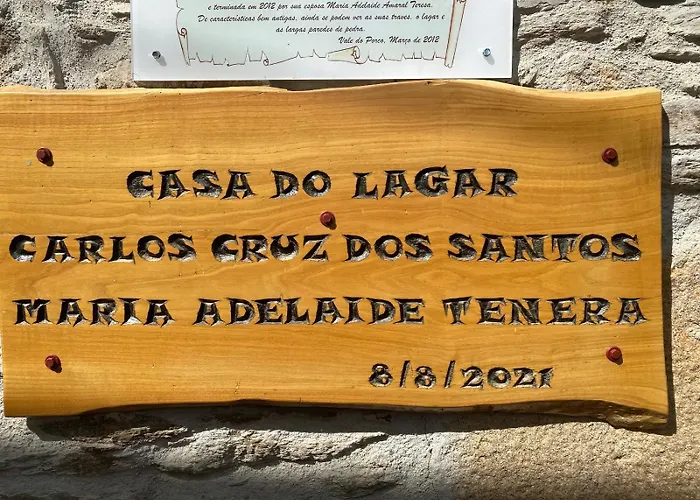 e terminada em 2012 por sua esposa Maria Adelaide Amaral Teresa.
De características bem antigas, ainda se podem ver as suas traves, o lagar e
as largas paredes de pedra.
Vale do Porco, Março de 2012
CASA DO LAGAR
CARLOS CRUZ DOS SANTOS
MARIA ADELAIDE TENERA
8/8/2021